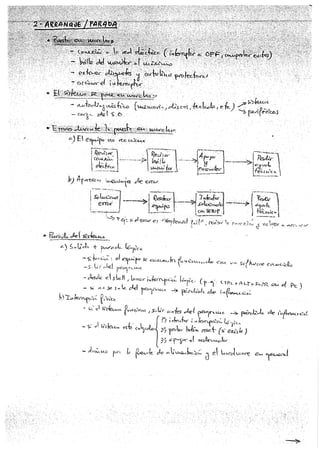 2.- ARRANQUE / PARADA
• Puesta en marcha
- conexión a la red eléctrica (interruptor a OFF, comprobar antes)
- brillo del monitor al máximo
- extraer disquetes y cartulina protectora
- accionar el interruptor
• El sistema se pone en marcha:
- autodiagnóstico (memoria, discos, teclado, etc.)
sistema
periféricos
- carga del S.O.
• Errores durante la puesta en marcha
a) El equipo no reacciona
Revisar conexión eléctrica
Revisar brillo monitor
Apagar y encender
Pedir ayuda técnica
b) Aparecen mensajes de error
Solucionar error
Rearrancar equipo
Intentar solucionarlo con SETUP
Pedir ayuda técnica
e.g.: el error es "Keyboard fail", revisar la conexión y volver a
• Parada del sistema
a) Salida o parada lógica
- situación: el equipo se encuentra funcionando con un software conocido
- salir del programa
- desde el shell, hacer interrupción lógica (p.ej. CTRL+ALT+SUPR en el PC)
- si no se sale del programa → pérdida de información
b) Interrupción física
- si el sistema funciona, salir antes del programa → pérdida de información
- si el sistema está colgado
1) intentar interrupción lógica
2) pulsar botón reset (si existe)
3) apagar el ordenador
- dañino para la fuente de alimentación y el hardware en general